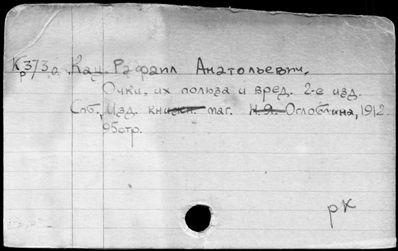 Кр373а Кац, Рафаил Анатольевич.
Очки, их польза и вред. 2-е изд.
Спб, Изд. книжн. маг. Н.Я. Оглоблина, 1912.
95стр.
рК